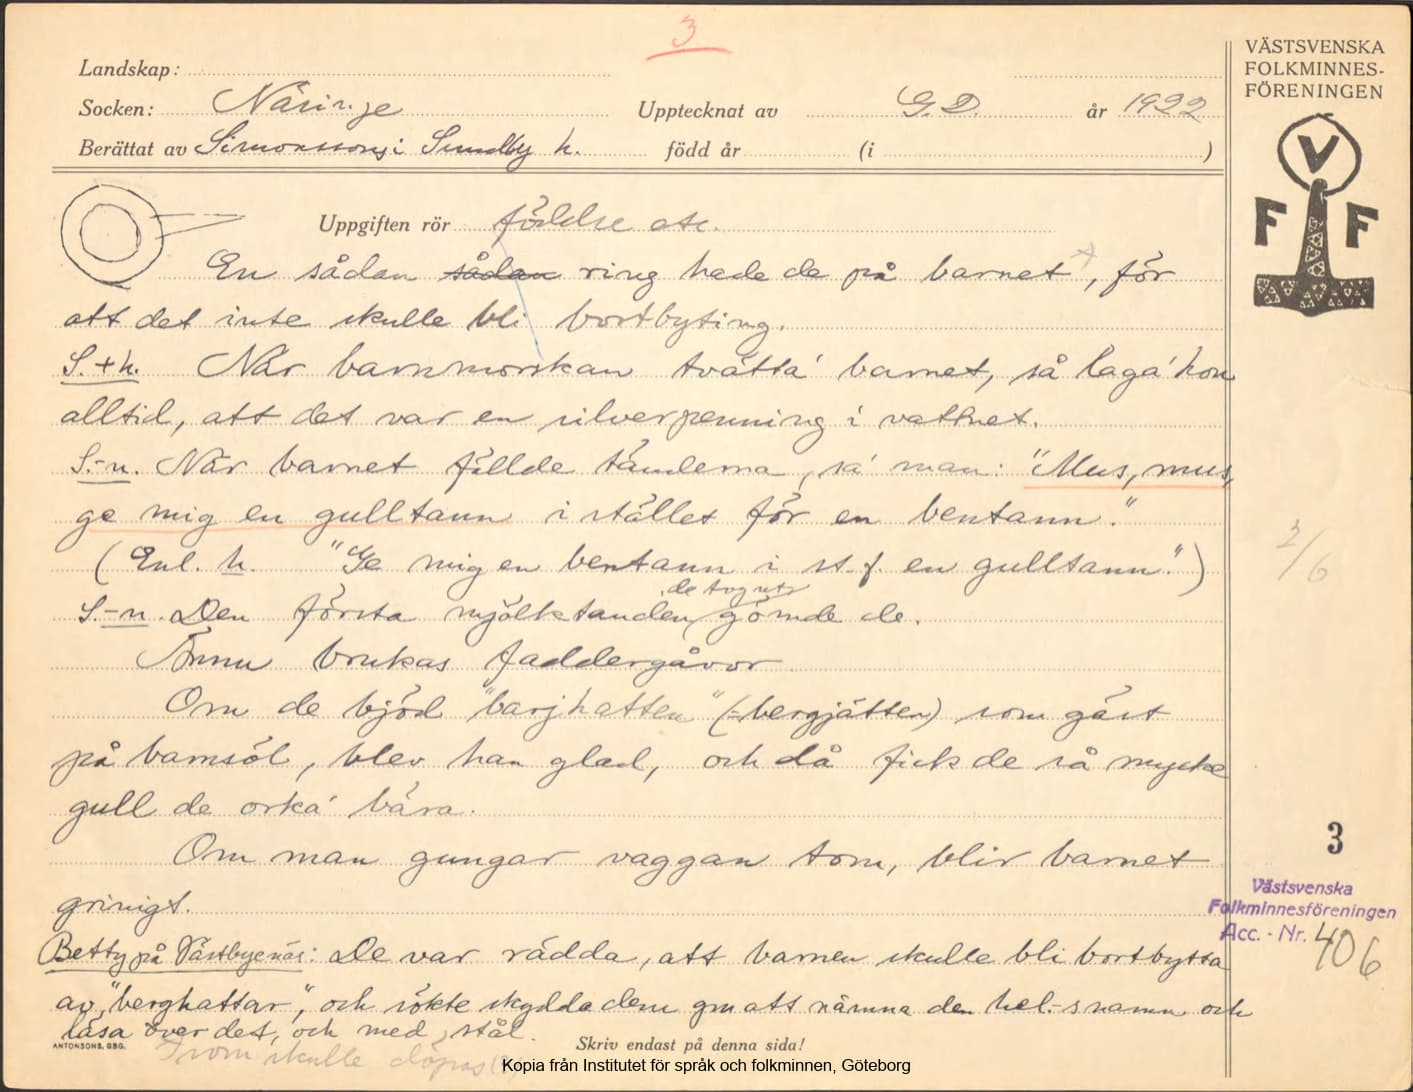 3
VÄSTSVENSKA
FOLKMINNES-
FÖRENINGEN
V
F F
Landskap:
Socken: Näsinge Upptecknat av G.D. år 1922
Berättat av Simonssons i Sundby h. född år (i )
Uppgiften rör födelse etc.
En sådan sådan ring hade de på barnet, för
att det inte skulle bli bortbyting.
S. + h. När barnmorskan tvätta' barnet, så laga' hon
alltid, att det var en silverpenning i vattnet.
S.-n. När barnet fällde tänderna, sa' man: "Mus, mus,
ge mig en gulltann i stället för en bentann."
(Enl. h. "Ge mig en bentann i st. f. en gulltann.")
de tog ut
S.-n. Den första mjölktanden gömde de.
Ännu brukas faddergåvor.
Om de bjöd "barjhatten" (= bergjätten) som gäst
på barnsöl, blev han glad, och då fick de så mycke
gull de orka' bära.
Om man gungar vaggan tom, blir barnet
grinigt.
Betty på Västbyenäs: De var rädda, att barnen skulle bli bortbytta
av "berghattar", och sökte skydda dem gm att nämna den hel-s namn och
läsa över det, och med stål.
som skulle döpas (?)
2/6
3
Västsvenska
Folkminnesföreningen
Acc. - Nr. 406
ANTONSONS, GBG.
Skriv endast på denna sida!
Kopia från Institutet för språk och folkminnen, Göteborg